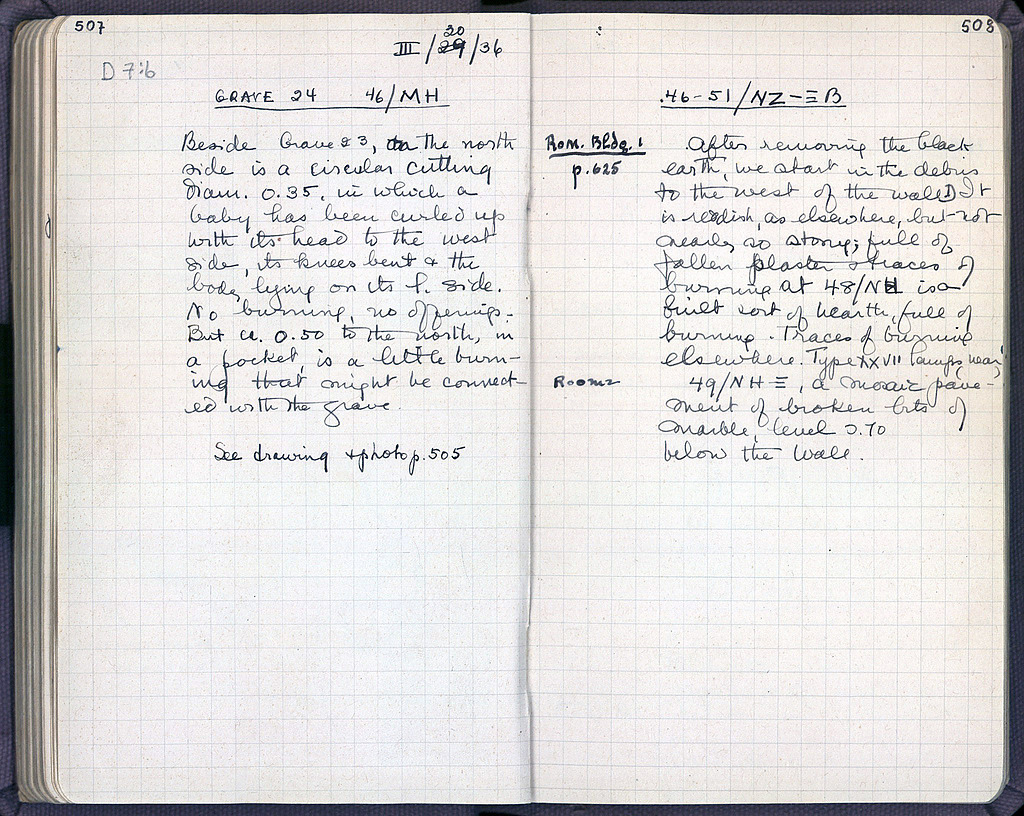 507
III/30/36
D 7:6
GRAVE 24 46/MH
Beside Grave 23, on the north
side is a circular cutting
diam. 0.35, in which a
baby has been curled up
with its head to the west
side, its knees bent & the
body lying on its l. side.
No burning, no offerings.
But ca. 0.50 to the north, in
a pocket, is a little burn-
ing that might be connect-
ed with the grave.
See drawing & photo p. 505
508
46-51/NZ-ΞB
Rom. Bldg. 1
p. 625
After removing the black
earth, we start in the debris
to the west of the wall D. It
is reddish, as elsewhere, but not
nearly so stony; full of
fallen plaster & traces of
burning at 48/N is a
built sort of hearth, full of
burning. Traces of burning
elsewhere. Type XXVII lamp, near,
Room 2
49/NH-Ξ, a mosaic pave-
ment of broken bits of
marble, level 0.70
below the wall.